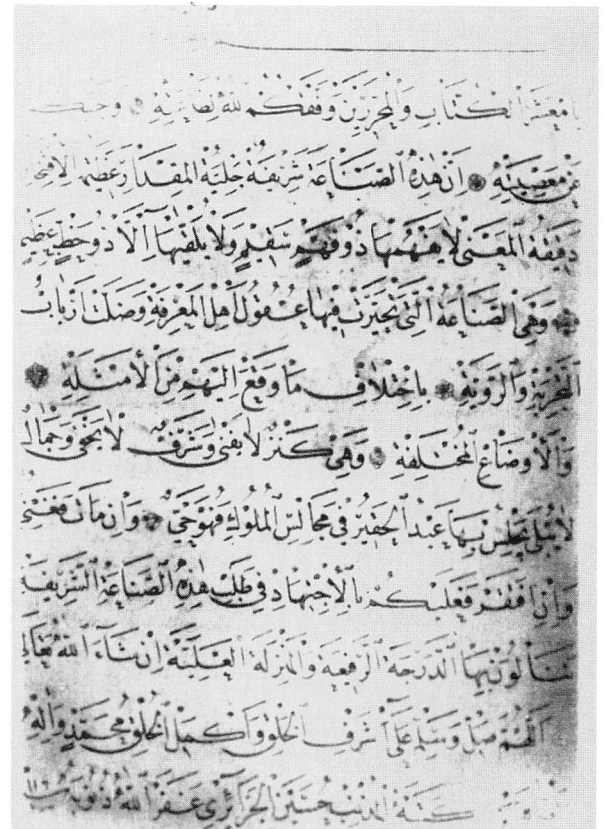 يا معشر الكتاب والمحررين وفقكم الله لطاعته
عن معصيته ان هذه الصناعة شريفة جليلة المقدار عظيمة
دقيقة المعنى لا يفهمها ذو فهم سقيم ولا يلقيها الا ذو حظ عظيم
وهي الصناعة التي تحيرت فيها عقول اهل المعرفة وضلت ارباب
التجربة والروية باختلاف ما وقع اليهم من الامثلة
والاوضاع المختلفة وهي كنز لا يفنى وشرف لا يخفى وجمال
لا يبلى يجلس بها عبد الحقير في مجالس الملوك فهو حي وان مات فغنى
وان افقر فعليكم بالاجتهاد في طلب هذه الصناعة الشريفة
تنالون بها الدرجة الرفيعة والمنزلة العلية ان شاء الله تعالى
اللهم صل وسلم على اشرف الخلق واكمل الخلق محمد وآله
كتبه المذنب حسين الجزائري غفر الله ذنوبه